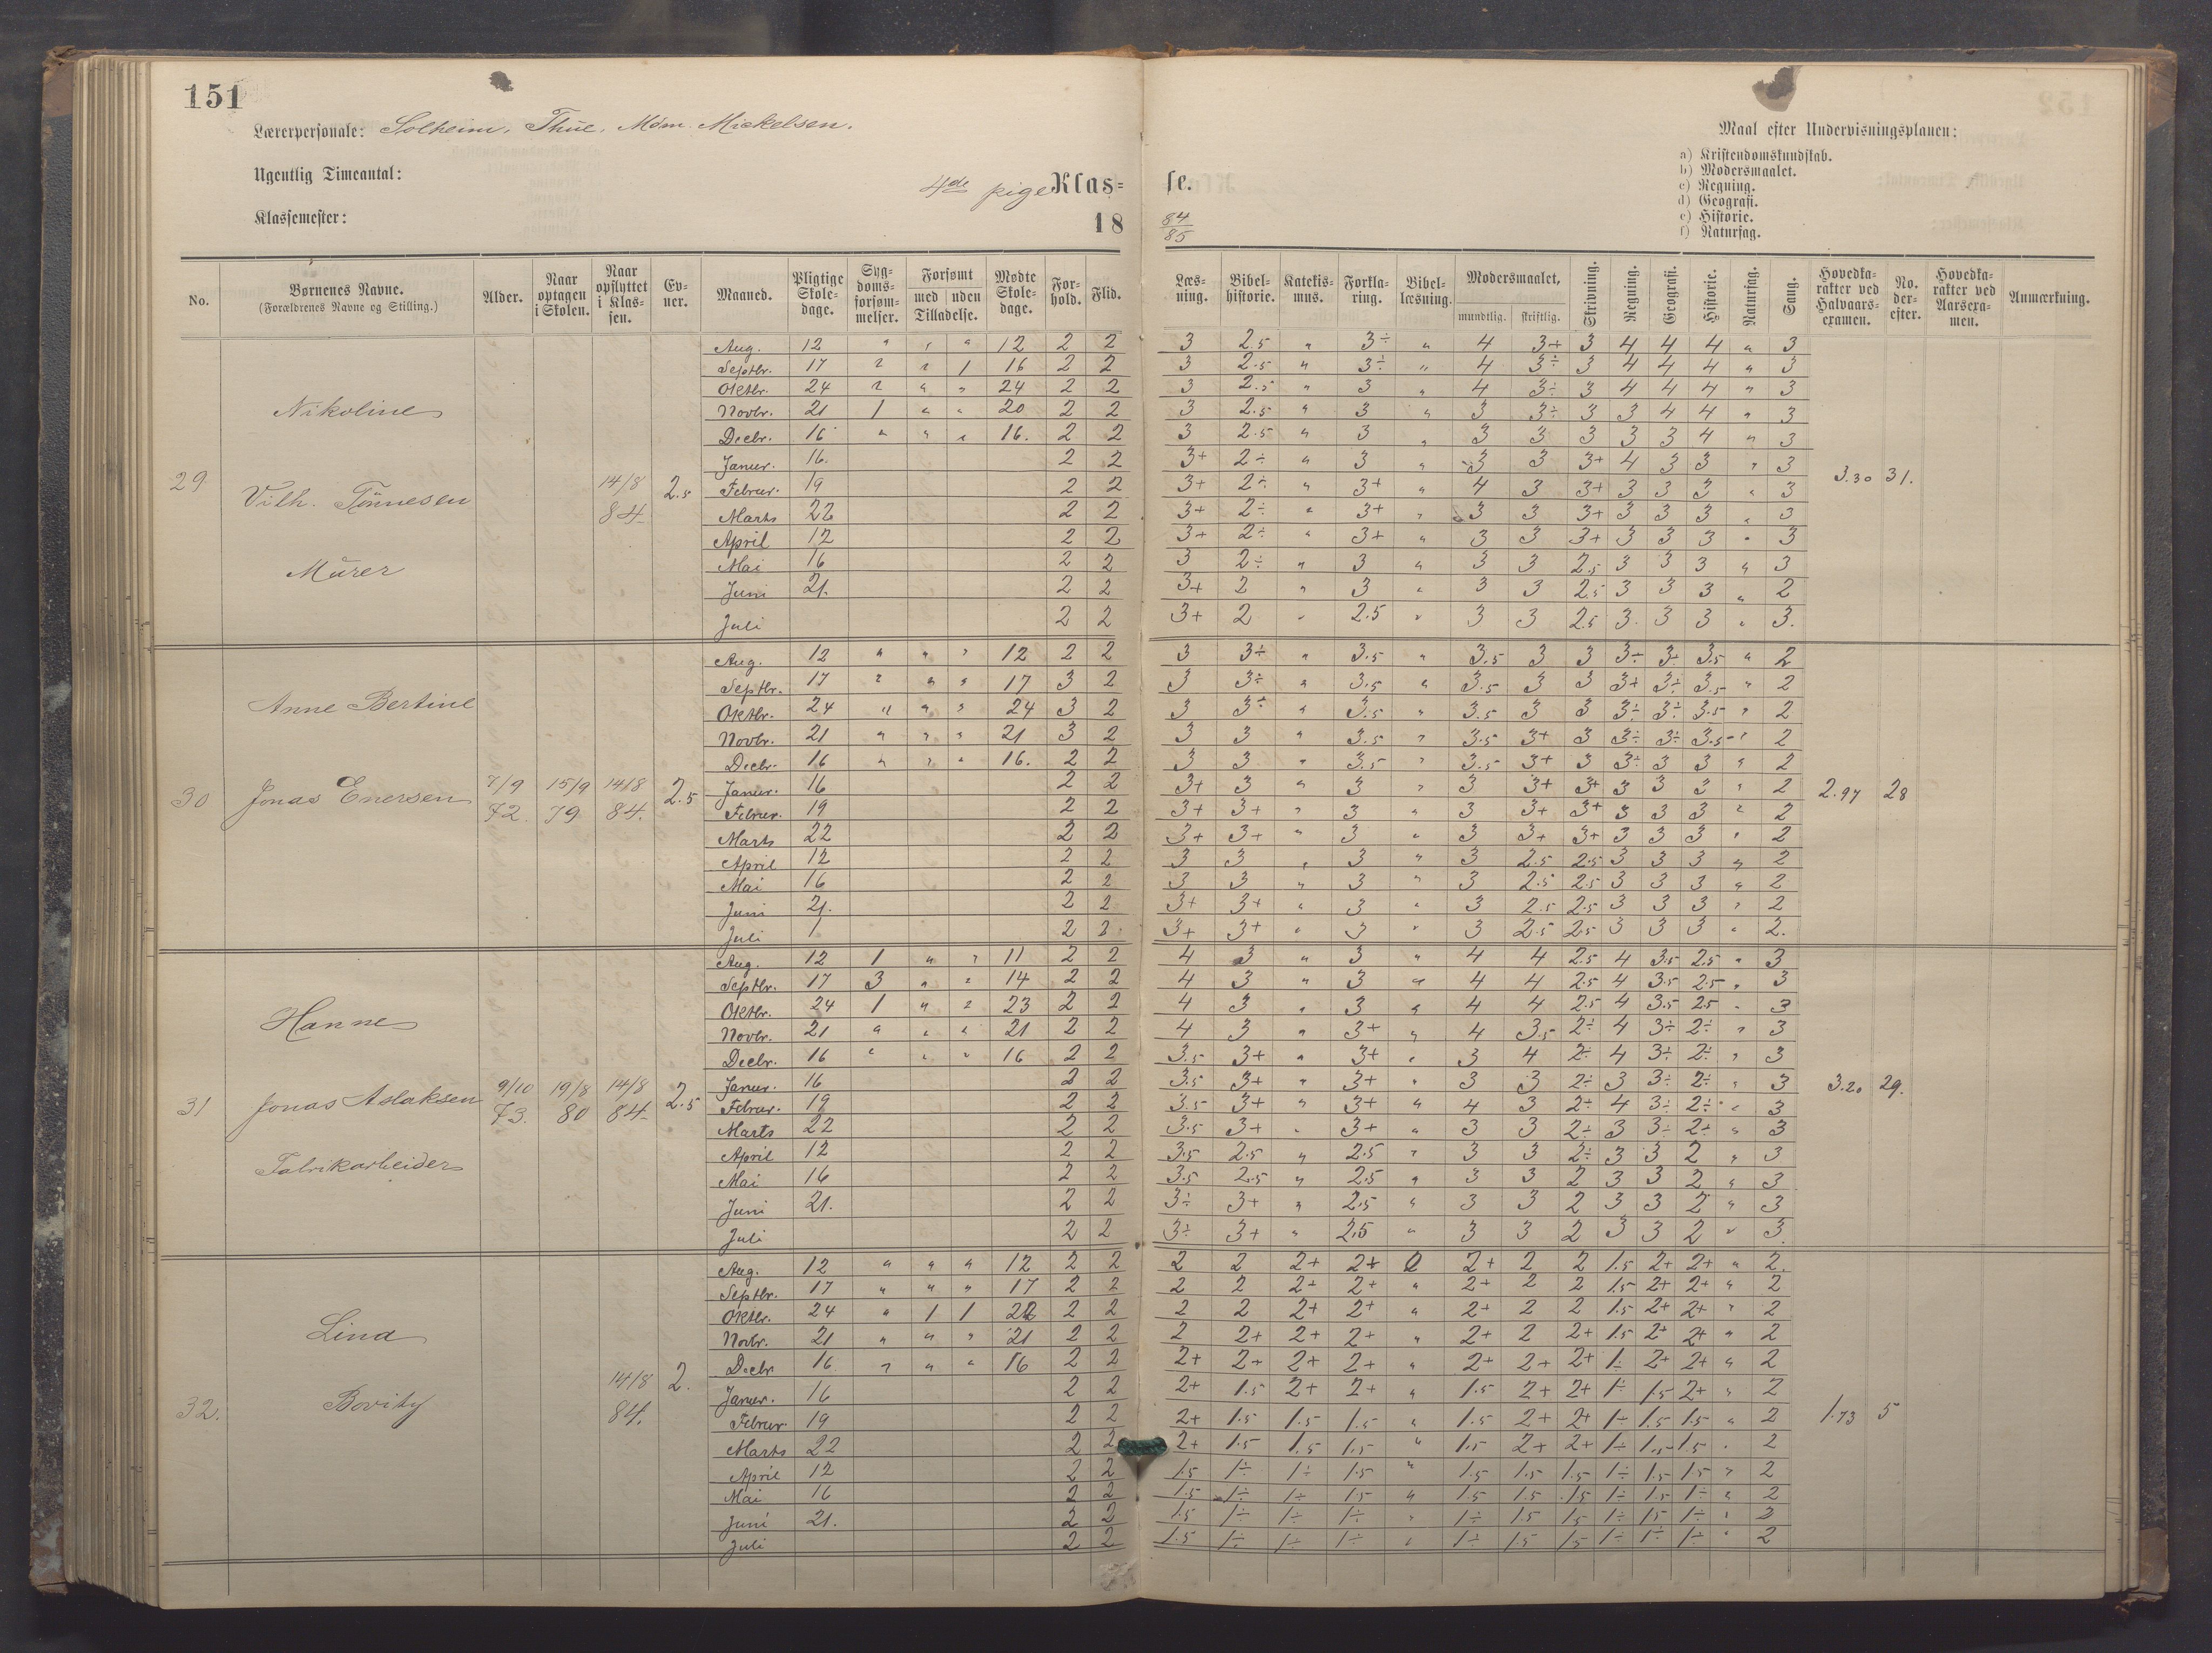 151
Lærerpersonale: Solheim, Thue, Møm. Mickelsen.
Ugentlig Timeantal:
Klassemester:
4de pige Klas= se.
18 84/85
Maal efter Undervisningsplanen:
a) Kristendomskundskab.
b) Modersmaalet.
c) Regning.
d) Geografi.
e) Historie.
f) Naturfag.
No. | Børnenes Navne. (Forældrenes Navne og Stilling.) | Alder. | Naar optagen i Skolen. | Naar opflyttet i Klassen. | Evner. | Maaned. | Pligtige Skoledage. | Sygdomsforsømmelser. | Forsømt med uden Tilladelse. | Mødte Skoledage. | Forhold. | Flid. | Læsning. | Bibelhistorie. | Katekismus. | Forklaring. | Bibellæsning. | Modersmaalet, mundtlig. skriftlig. | Skrivning. | Regning. | Geografi. | Historie. | Naturfag. | Sang. | Hovedkarakter ved Halvaarsexamen. | No. derefter. | Hovedkarakter ved Aarsexamen. | Anmærkning.
29 Nikoline
Vilh. Tönnesen
Murer
14/8 84. 2.5
Aug. 12 " " " 12 2 2 3 2.5 " 3÷ " 4 3+ 3 4 4 4 " 3
Septbr. 17 " " 1 16 2 2 3 2.5 " 3÷ " 4 3÷ 3 4 4 4 " 3
Oktbr. 24 " " " 24 2 2 3 2.5 " 3 " 4 3÷ 3 4 4 4 " 3
Novbr. 21 1 " " 20 2 2 3 2.5 " 3 " 3 3÷ 3 3 4 4 " 3
Decbr. 16 " " " 16. 2 2 3 2.5 " 3 " 3 3 3 3 3 4 " 3
Januar. 16. 2 2 3+ 2÷ " 3 " 3 3 3+ 4 3 3 " 3
Februar. 19 2 2 3+ 2÷ " 3+ " 4 3 3+ 3 3 3 " 3
Marts 22 2 2 3+ 2÷ " 3+ " 3 3 3+ 3 3 3 " 3
April 12 2 2 3+ 2÷ " 3+ " 3 3 3+ 3 3 3 " 3
Mai 16 2 2 3 2÷ " 3 " 3 3 2.5 3 3 3 " 3
Juni 21. 2 2 3+ 2 " 3 " 3 3 2.5 3 3 3 " 2
Juli 2 2 3+ 2 " 2.5 " 3 3 2.5 3. 3 3 " 3.
3.30 31.
30 Anne Bertine
Jonas Enersen
7/9 72. 15/9 79 14/8 84. 2.5
Aug. 12 " " " 12 2 2 3 3÷ " 3.5 " 3.5 3 3 3÷ 3÷ 3.5 " 2
Septbr. 17 " " " 17 3 2 3 3÷ " 3.5 " 3.5 3 3 3+ 3÷ 3.5 " 2
Oktbr. 24 " " " 24 3 2 3 3÷ " 3.5 " 3.5 3 3 3÷ 3÷ 3.5 " 2
Novbr. 21 " " " 21 3 2 3 3 " 3.5 " 3.5 3+ 3 3÷ 3÷ 3.5 " 2
Decbr. 16 " " " 16. 2 2 3 3 " 3.5 " 3.5 3+ 3 3÷ 3 3 " 2
Januar. 16 2 2 3+ 3 " 3 " 3 3+ 3+ 3 3 3 " 2
Februar. 19 2 2 3+ 3+ " 3 " 3 3+ 3+ 3 3 3 " 2
Marts 22 2 2 3+ 3+ " 3 " 3 3+ 3+ 3 3 3 " 2
April 12 2 2 3 3 " 3 " 3 2.5 2.5 3 3 3 " 2
Mai 16 2 2 3 3 " 3 " 3 2.5 2.5 3 3 3 " 2
Juni 21. 2 2 3+ 3+ " 3 " 3 2.5 2.5 3 3 3 " 2
Juli 2 2 3+ 3+ " 3 " 3 2.5 2.5 3 3 3 " 2.
2.97 28
31 Hanne
Jonas Aslaksen
Fabrikarbeider
9/10 73. 19/8 80 14/8 84. 2.5
Aug. 12 1 " " 11 2 2 4 3 " 3 " 4 4 2.5 4 3.5 2.5 " 3
Septbr. 17 3 " " 14 2 2 4 3 " 3 " 4 4 2.5 4 3.5 2.5 " 3
Oktbr. 24 1 " " 23 2 2 4 3 " 3 " 4 4 2.5 4 3.5 2.5 " 3
Novbr. 21 " " " 21 2 2 4 3 " 3+ " 4 3.5 2÷ 4 3÷ 2÷ " 3
Decbr. 16 " " " 16 2 2 3.5 3+ " 3+ " 3 4 2÷ 4 3÷ 2÷ " 3
Januar. 16 2 2 3.5 3+ " 3+ " 3 3 2÷ 3 3÷ 2÷ " 3
Februar. 19 2 2 3.5 3+ " 3+ " 4 3 2÷ 4 3÷ 2÷ " 3
Marts 22 2 2 3.5 3+ " 3+ " 3 3 2÷ 3 3÷ 2÷ " 3
April 12 2 2 3.5 2.5 " 2.5 " 3 3 2÷ 3 3 2 " 3
Mai 16 2 2 3.5 2.5 " 2.5 " 3 3 2 3 3 2 " 3
Juni 21. 2 2 3÷ 3+ " 2.5 " 3 3 2 3 3 2 " 3
Juli 2 2 3÷ 3+ " 2.5 " 3 3 2 3 3 2 " 3.
3.20 29.
32. Lina
Bovitz
14/8 84. 2.
Aug. 12 " " " 12 2 2 2 2 2+ 2+ 2 2+ 2 2 1.5 2+ 2+ " 2.
Septbr. 17 " " " 17 2 2 2 2 2+ 2+ " 2+ 2 2 1.5 2+ 2+ " 2
Oktbr. 24 " 1 1 22 2 2 2 2 2+ 2+ " 2+ 2 2 1.5 2+ 2+ " 2
Novbr. 21 " " " 21 2 2 2 2+ 2+ 2+ " 2+ 2 2+ 1.5 2+ 2+ " 2
Decbr 16 " " " 16 2 2 2+ 2+ 2+ 2+ " 2+ 2+ 2+ 1÷ 2+ 2+ " 2
Januar. 16 2 2 2+ 1.5 2+ 2+ " 1.5 2+ 2+ 1÷ 1.5 2+ " 2
Februar. 19 2 2 2+ 1.5 1.5 1.5 " 1.5 2+ 2+ 1÷ 1.5 1.5 " 2
Marts 22 2 2 2+ 1.5 1.5 1.5 " 1.5 2+ 2+ 1÷ 1.5 1.5 " 2
April 12 2 2 1.5 1÷ 1÷ 1.5 " 1.5 1.5 1.5 1÷ 1.5 1.5 " 2
Mai 16 2 2 1.5 1÷ 1÷ 1.5 " 1.5 1.5 1.5 1÷ 1.5 1÷ " 2
Juni 21. 2 2 1.5 1÷ 1÷ 1÷ " 1÷ 1.5 1.5 1÷ 1.5 1÷ " 2
Juli 2 2 1.5 1÷ 1÷ 1÷ " 1÷ 1.5 1.5 1÷ 1÷ 1÷ " 2
1.73 5